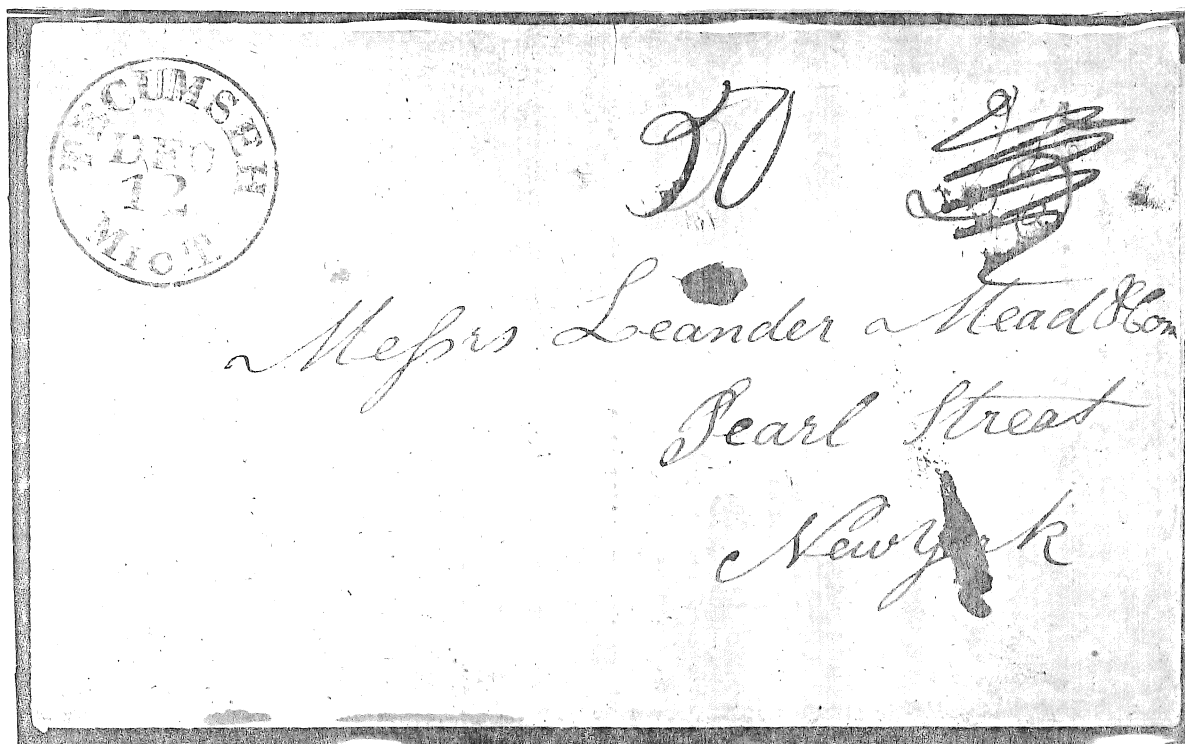 TECUMSEH
DEC
12
MIC.T.
50
Messrs Leander Mead & Com
Pearl Street
New York